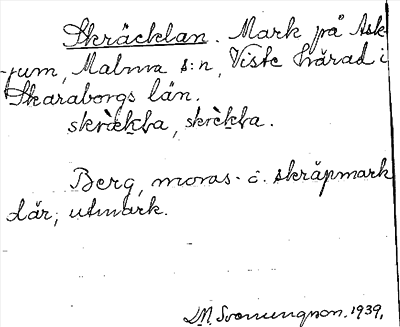 Skräcklan. Mark på Ask
-rum, Malma s:n, Viste härad i
Skaraborgs län.
skræk̠la, skrèk̠la.
Berg, moras- o. skräpmark
där; utmark.
1939.